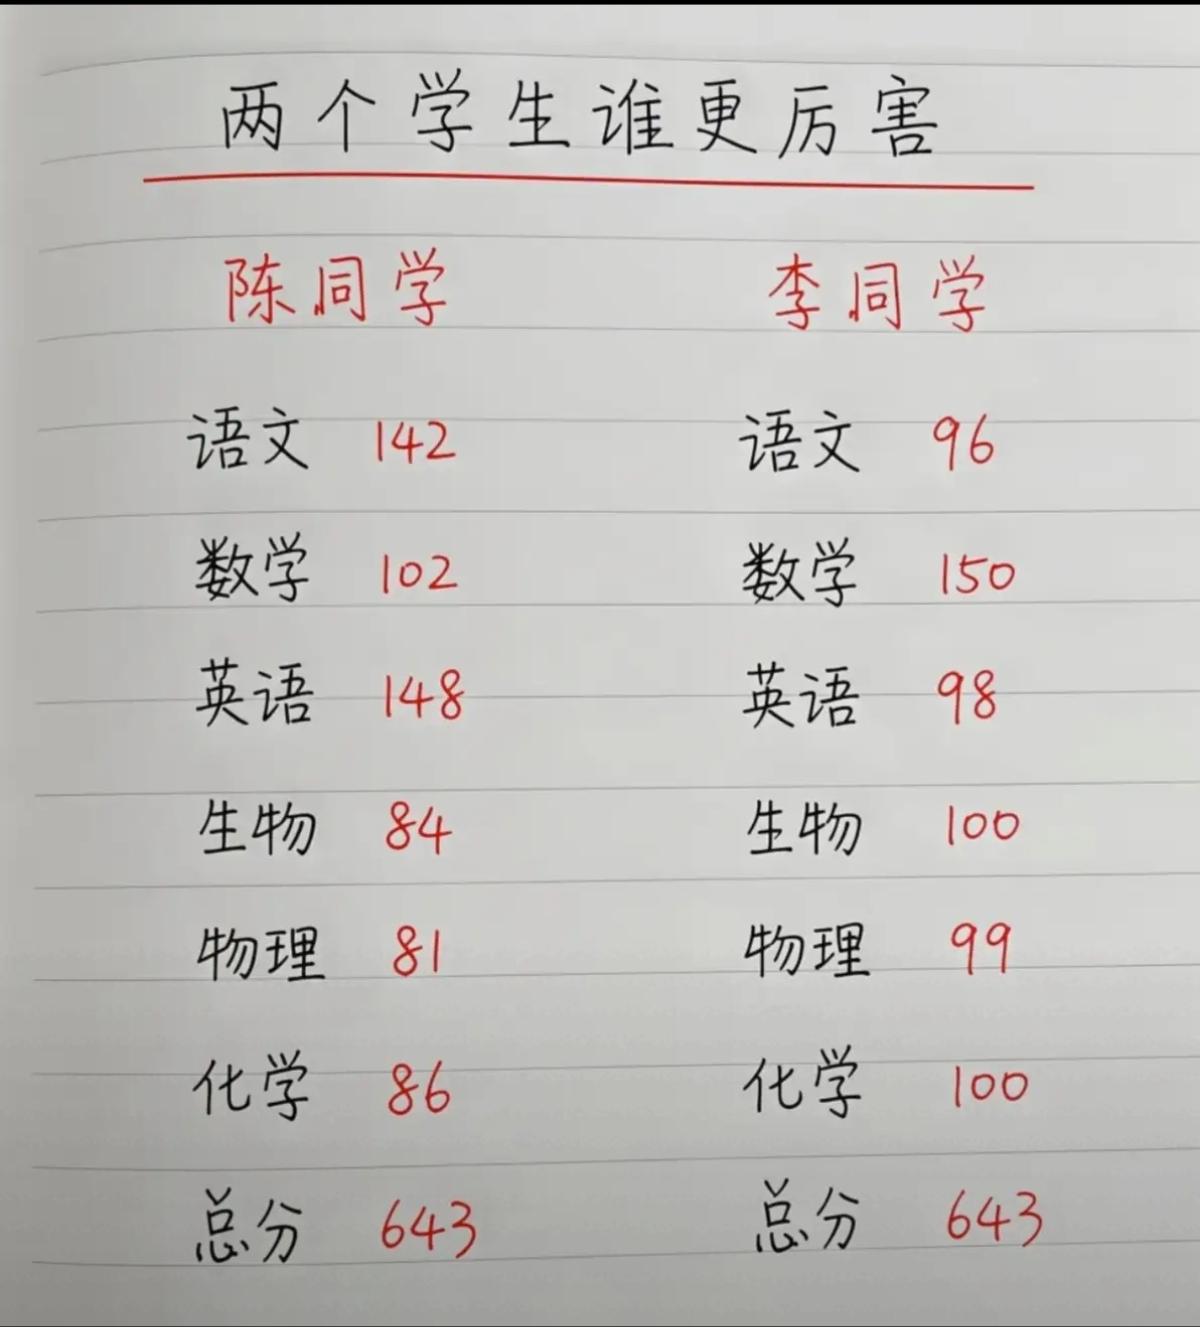 两个学生谁更厉害
陈同学 李同学
语文 142 语文 96
数学 102 数学 150
英语 148 英语 98
生物 84 生物 100
物理 81 物理 99
化学 86 化学 100
总分 643 总分 643